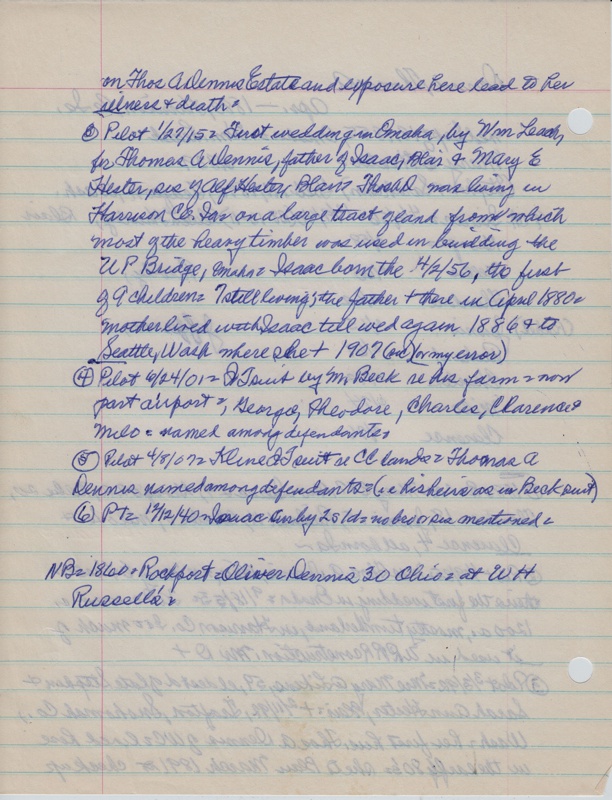 on Thos A Dennis Estate and exposure here lead to her
illness & death =
③ Pilot 1/27/15 = First wedding in Omaha, by Wm Leach,
for Thomas A Dennis, father of Isaac, Blair & Mary E
Hester, sis of Alf Hester, Blair = Thos D was living in
Harrison Co. Ia = on a large tract of land from which
most of the heavy timber was used in building the
U P Bridge, Omaha = Isaac born the 4/2/56, the first
of 9 children = 7 still living; the father + there in April 1880 =
mother lived with Isaac till wed again 1886 & to
Seattle, Wash where she + 1907 (or my error)
④ Pilot 6/24/01 = Q T suit by M. Beck re his farm = now
part airport =, George, Theodore, Charles, Clarence &
Milo = named among defendants =
⑤ Pilot 4/8/07 = Kline Q T suit re CC lands = Thomas A
Dennis named among defendants = (i.e. his heirs as in Beck suit)
⑥ PT = 12/12/40 = Isaac Oms by 2s 1d = no bro or sis mentioned =
NB = 1860 = Rockport = Oliver Dennis 30 Ohio = at W H
Russell's =